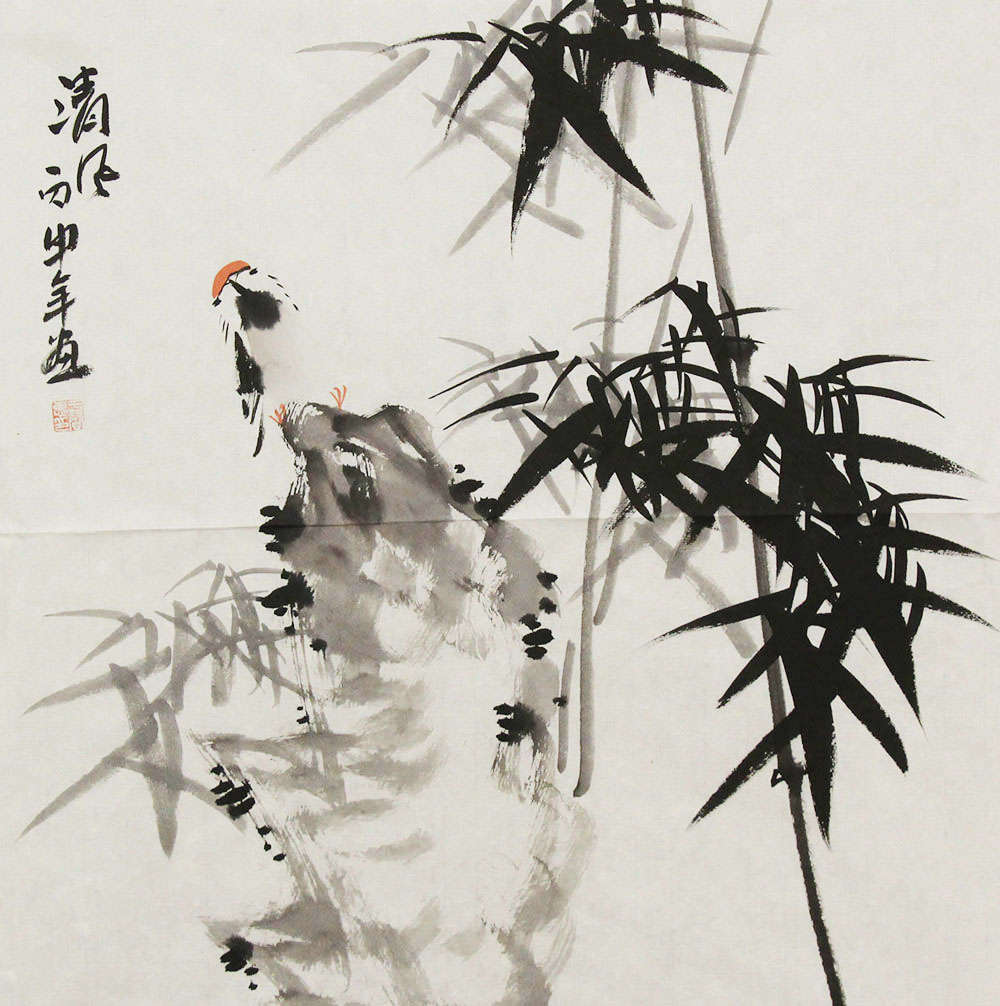 清风
丙申年画